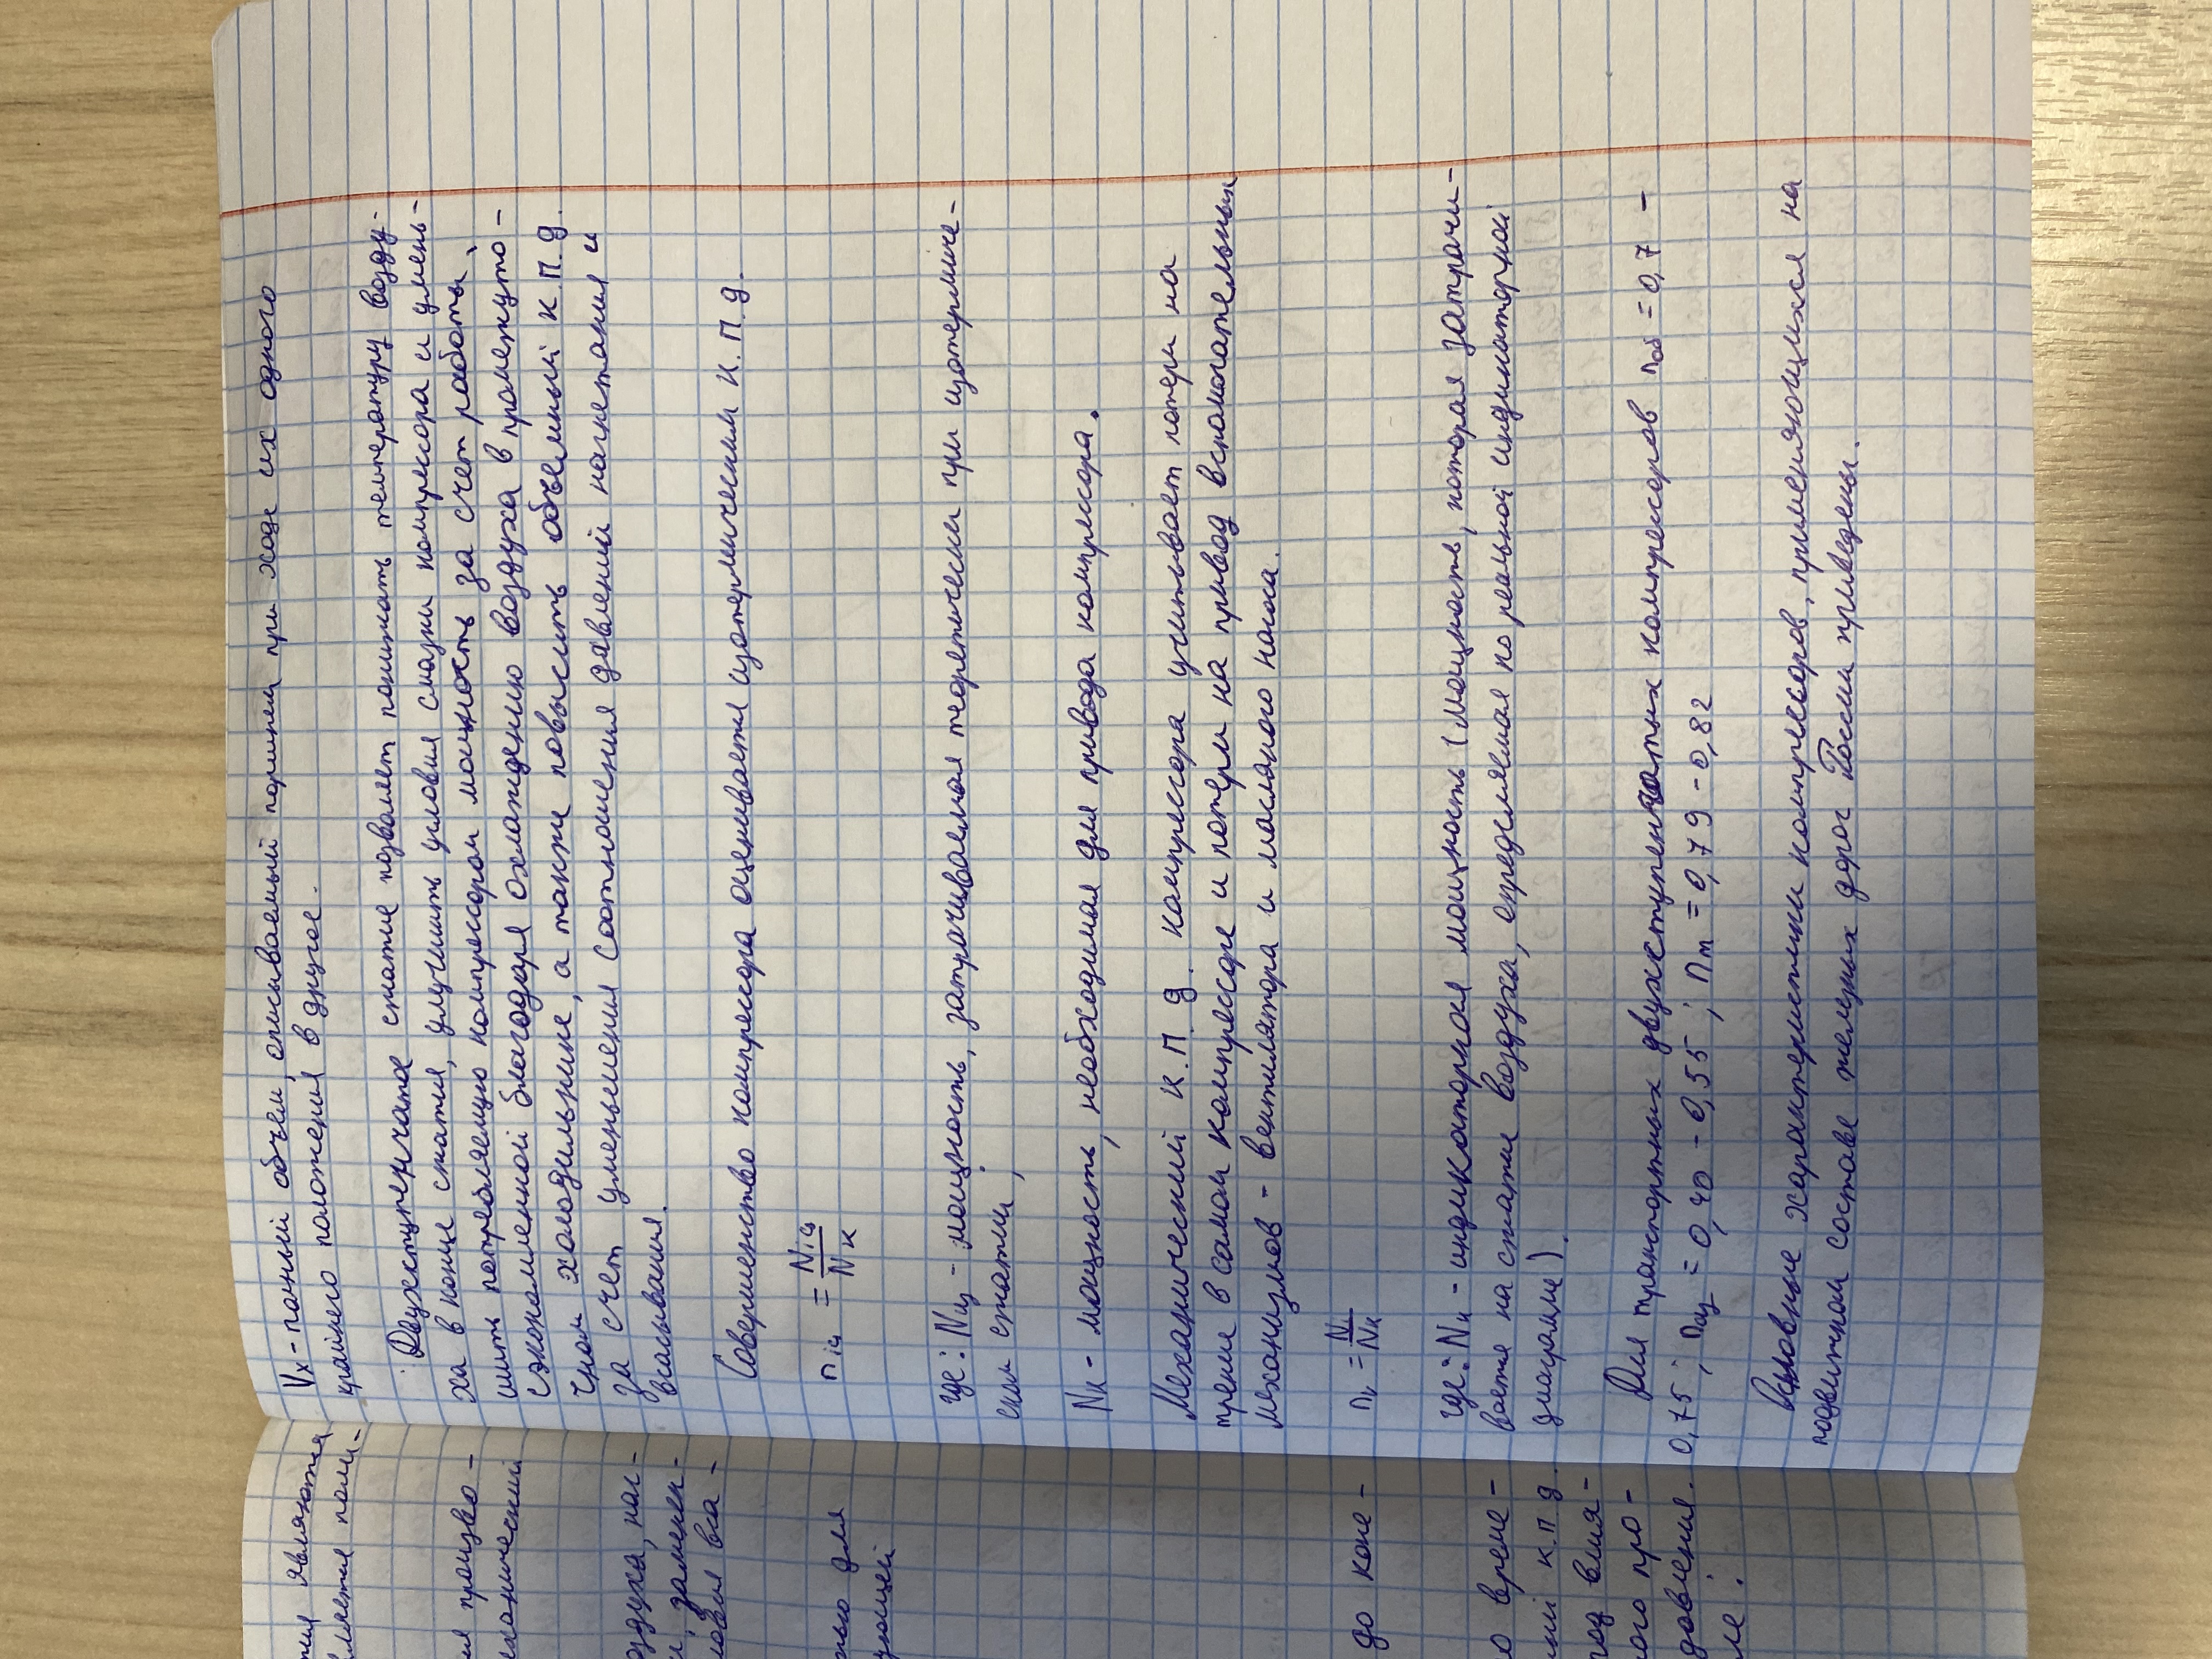 Vx - полный объем, описываемый поршнем при ходе их одного
крайнего положения в другое.
Двухступенчатое сжатие позволяет понижать температуру возду-
ха в конце сжатия, улучшить условия смазки компрессора и умень-
шить потребляемую компрессором мощность за счет работы,
сэкономленной благодаря охлаждению воздуха в промежуто-
чном холодильнике, а также повысить объемный к.п.д.
за счет уменьшения соотношения давлений нагнетания и
всасывания.
Совершенство компрессора оценивается изотермическим к.п.д.
где: Nиз - мощность, затрачиваемая теоретически при изотермиче-
ском сжатии,
Nк - мощность, необходимая для привода компрессора.
Механический к.п.д. компрессора учитывает потери на
трение в самом компрессоре и потери на привод вспомогательных
механизмов - вентилятора и масляного насоса.
где: Nи - индикаторная мощность (мощность, которая затрачи-
вается на сжатие воздуха, определяемая по реальной индикаторной
диаграмме).
Для транспортных двухступенчатых компрессоров nоб = 0,7 -
0,75; nиз = 0,40 - 0,55; nm = 0,79 - 0,82
Основные характеристики компрессоров, применяющихся на
подвижном составе железных дорог России приведены.
являются
я произво-
еханический
оздуха, наг-
только для
до коне-
о време-
к.п.д
под влия-
ого про-
давления.